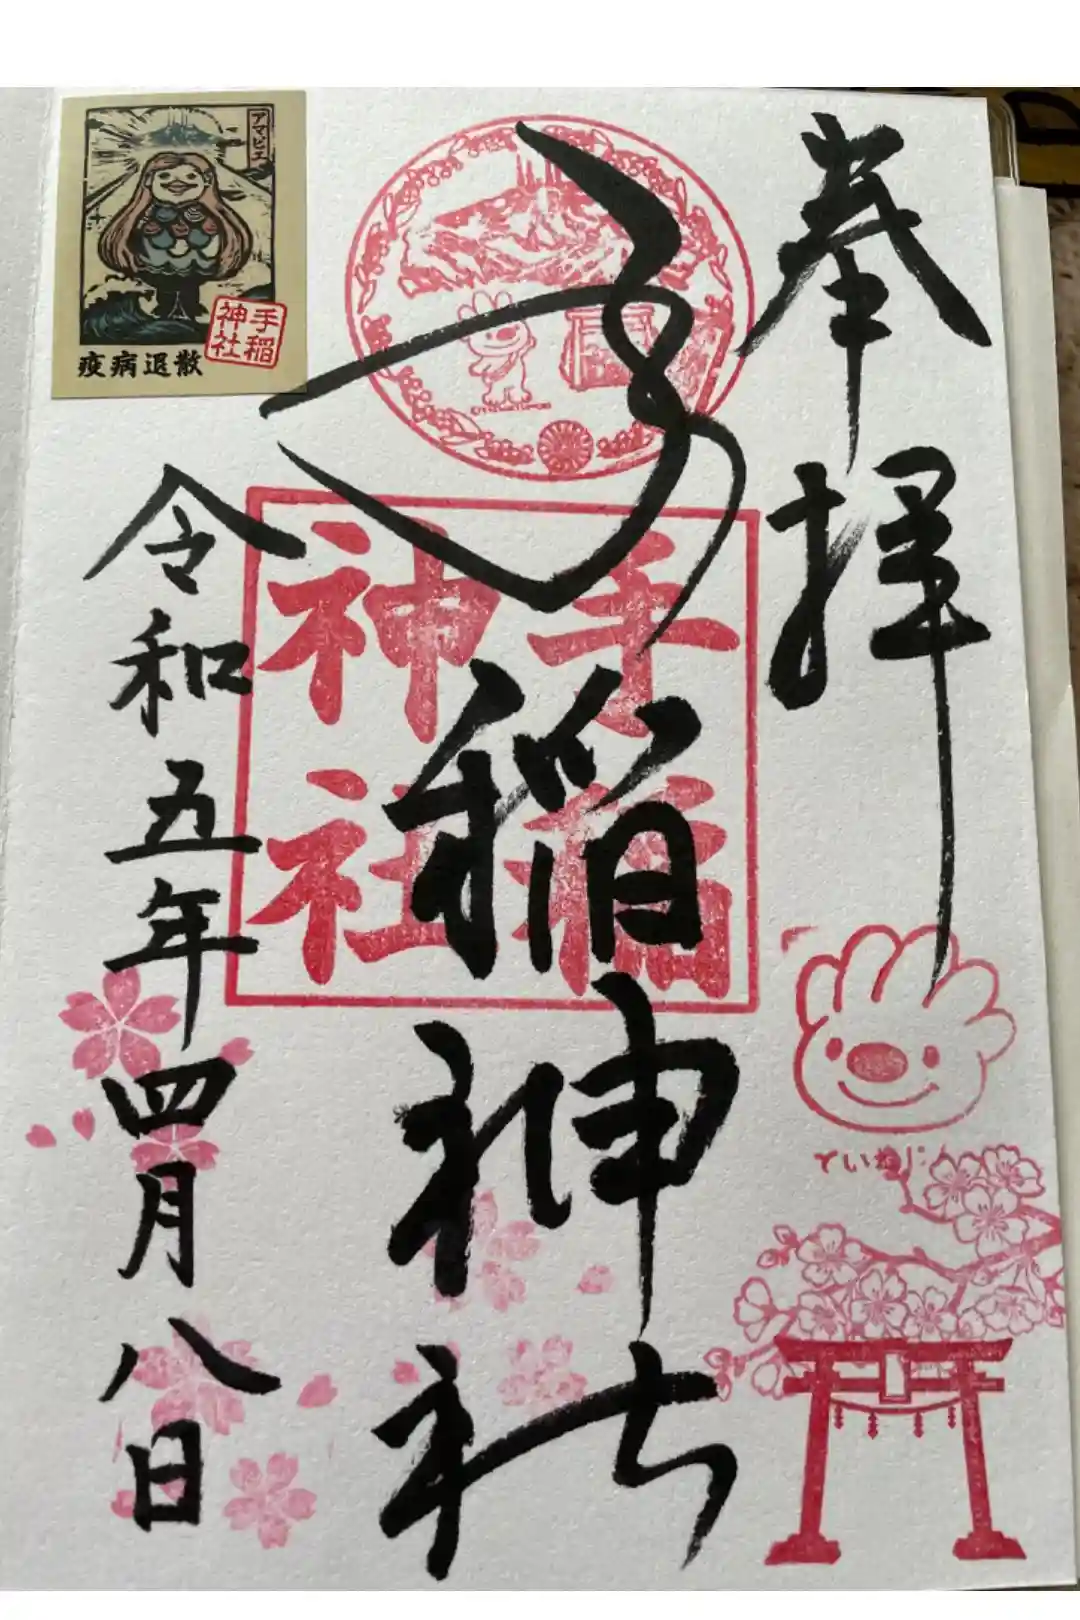 奉拝
手稲神社
手稲神社
ていぬじい
令和五年四月八日
アマビエ
手稲神社
疫病退散